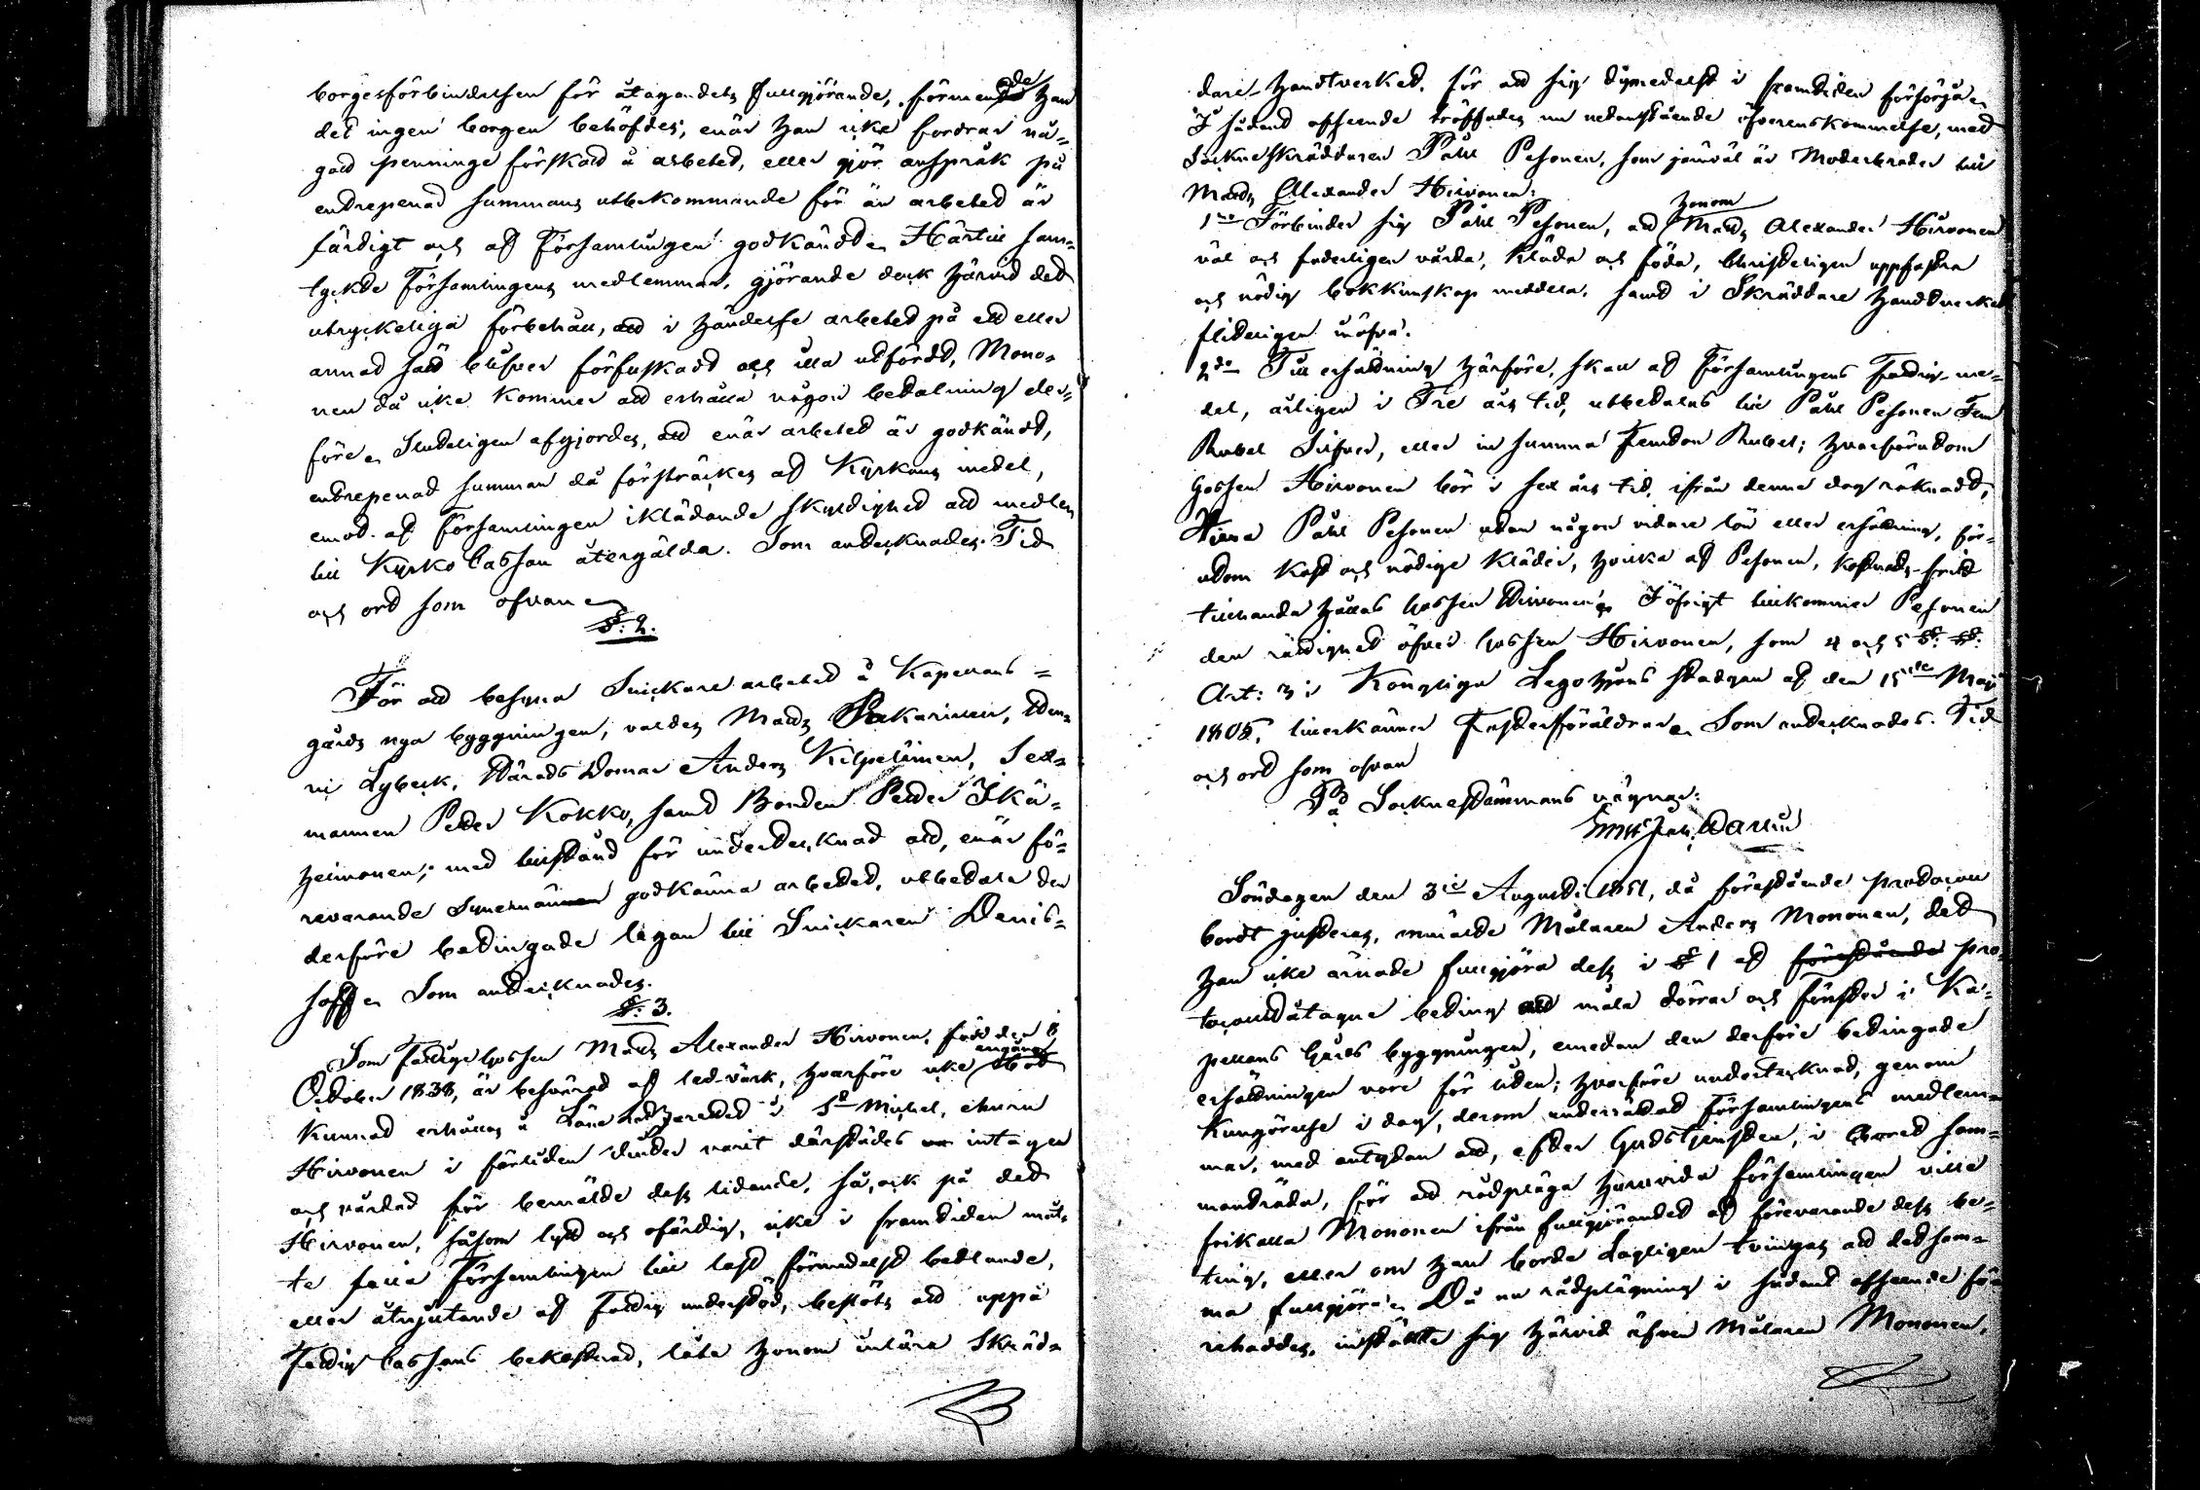 borgesförbindelsen för åtagandets fullgjörande, förmenade han
det ingen borgen behöfdes, enär han icke fordrar nå-
got penninge förskott å arbetet, eller gjör anspråk på
entrepenad summans utbekommande för än arbetet är
färdigt och af Församlingen godkändt. Härtill sam-
tyckte Församlingens medlemmar, gjörande dock härvid det
utryckeliga förbehåll, att i händelse arbetet på ett eller
annat sätt blifver förfuskadt och illa utfördt, Mono-
nen då icke kommer att erhålla någon betalning der-
före. Sluteligen afgjordes, att enär arbetet är godkändt,
entrepenad summan då försträckes af Kyrkans medel,
emot af Församlingen iklädande skyldighet att medlen
till Kyrko Cassan återgälda. Som antecknades. Tid
och ort som ofvan
§: 2.
För att besyna Snickare arbetet å Kapellans-
gårds nya byggningen, valdes Matts Pakarinen, Hen-
ric Lybeck, Härads Domar Anders Kilpeläinen, Sex-
mannen Peter Kokko, samt Bonden Petter Ikä-
heimonen; med tillstånd för undertecknad att, enär fö-
revarande Synemännen godkänna arbetet, utbetala den
derföre betingade legan till Snickaren Denis-
soff. Som antecknades.
§: 3.
Som Fattige Gossen Matts Alexander Hirvonen, född den 8
October 1838, är besvärad af led-värk, hvarföre icke
kunnat erhållas å Läne Lazarettet i S:t Michel, ehuru
Hirvonen i förliden vinter varit därstädes intagen
och vårdad för bemälde dess lidande, så, ock på det
Hirvonen, såsom lytt och ofärdig, icke i framtiden måt-
te falla Församlingen till last förmedelst bettlande,
eller åtnjutande af Fattig understöd, beslöts att uppå
Fattig Cassans bekostnad, låta honom inlära Skräd-
dare Handtverket, för att sig dymedelst i framtiden försörja.
I sådant afseende träffades nu nedanstående öfverenskommelse, med
Sockneskräddaren Påhl Pesonen, som jämväl är Moderbroder till
Matts Alexander Hirvonen:
1:mo Förbinder sig Påhl Pesonen, att honom Matts Alexander Hirvonen
väl och faderligen vårda, kläda och föda, christeligen uppfostra
och nödig bokkunskap meddela, samt i Skräddare Handtverket
fliteligen inöfva.
2:do Till ersättning härföre, skall af Församlingens Fattig-me-
del, årligen i Tre års tid, utbetalas till Påhl Pesonen Fem
Rubel Silfver, eller in summa Femton Rubel; hvarförutom
Gossen Hirvonen bör i sex års tid, ifrån denne dag räknadt,
tjena Påhl Pesonen utan någon vidare lön eller ersättning, för-
utom kost och nödige kläder, hvilka af Pesonen, kostnads-fritt
tillhanda hållas Gossen Hirvonen. I öfrigt tillkommer Pesonen
den rättighet öfver Gossen Hirvonen, som 4 och 5 §: §:
Art: 3 i Kongliga Legohjons stadgan af den 15:de Maji
1805, tillerkänner Fosterföräldrar. Som antecknades. Tid
och ort som ofvan
På Socknestämmans vägnar:
Söndagen den 3:die Augusti 1851, då förestående protocoll
bordt justeras, anmälde Målaren Anders Mononen, det
han icke ärnade fullgjöra dess i § 1 af förestående pro-
tocoll åtagne beting att måla dörrar och fönster i Ka-
pellans Gårds byggningen, emedan den derföre betingade
ersättningen vore för liten; hvarföre undertecknad, genom
kungörelse i dag, derom underrättat Församlingens medlem-
mar, med antydan att, efter Gudstjensten, i Sockne sam-
manträda, för att rådpläga huruvida Församlingen ville
frikalla Mononen ifrån fullgjörandet af förevarande dess be-
ting, eller om han borde Lagligen tvingas att detsam-
ma fullgjöra. Då nu rådplägning i sådant afseende fö-
rehaddes, inställte sig härvid äfven Målaren Mononen,